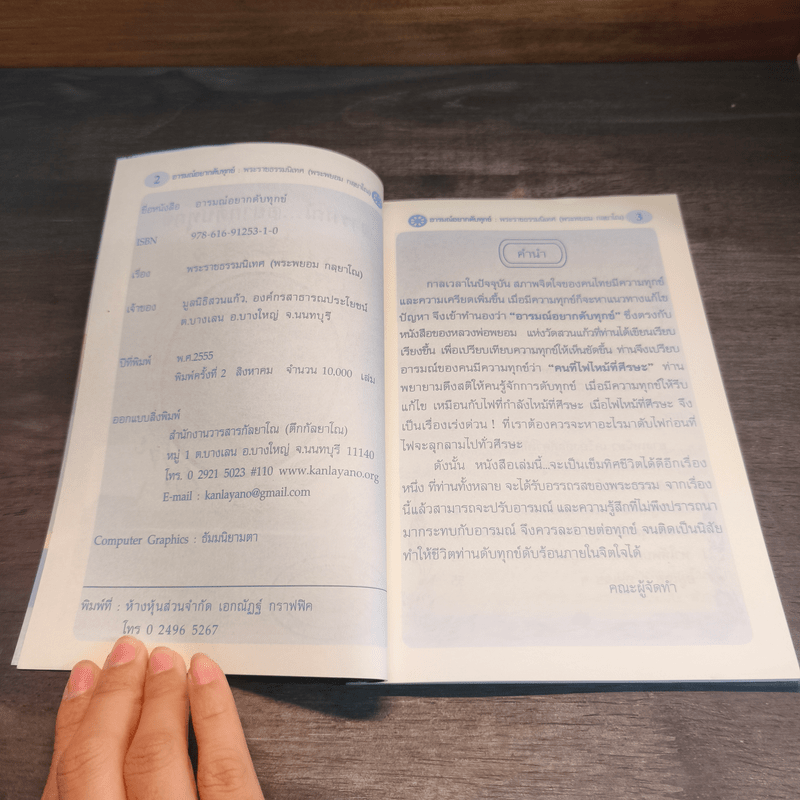 2 อารมณ์อยากดับทุกข์ : พระราชธรรมนิเทศ (พระพยอม กลฺยาโณ)
ชื่อหนังสือ อารมณ์อยากดับทุกข์
ISBN 978-616-91253-1-0
เรื่อง พระราชธรรมนิเทศ (พระพยอม กลฺยาโณ)
เจ้าของ มูลนิธิสวนแก้ว, องค์กรสาธารณประโยชน์
ต.บางเลน อ.บางใหญ่ จ.นนทบุรี
ปีที่พิมพ์ พ.ศ.2555
พิมพ์ครั้งที่ 2 สิงหาคม จำนวน 10,000 เล่ม
ออกแบบสิ่งพิมพ์
สำนักงานวารสารกัลยาโณ (ตึกกัลยาโณ)
หมู่ 1 ต.บางเลน อ.บางใหญ่ จ.นนทบุรี 11140
โทร. 0 2921 5023 #110 www.kanlayano.org
E-mail : kanlayano@gmail.com
Computer Graphics : ธัมมนิยามตา
พิมพ์ที่ : ห้างหุ้นส่วนจำกัด เอกณัฏฐ์ กราฟฟิค
โทร 0 2496 5267
อารมณ์อยากดับทุกข์ : พระราชธรรมนิเทศ (พระพยอม กลฺยาโณ) 3
คำนำ
กาลเวลาในปัจจุบัน สภาพจิตใจของคนไทยมีความทุกข์
และความเครียดเพิ่มขึ้น เมื่อมีความทุกข์ก็จะหาแนวทางแก้ไข
ปัญหา จึงเข้าทำนองว่า "อารมณ์อยากดับทุกข์" ซึ่งตรงกับ
หนังสือของหลวงพ่อพยอม แห่งวัดสวนแก้วที่ท่านได้เขียนเรียบ
เรียงขึ้น เพื่อเปรียบเทียบความทุกข์ให้เห็นชัดขึ้น ท่านจึงเปรียบ
อารมณ์ของคนมีความทุกข์ว่า "คนที่ไฟไหม้ที่ศีรษะ" ท่าน
พยายามดึงสติให้คนรู้จักการดับทุกข์ เมื่อมีความทุกข์ให้รีบ
แก้ไข เหมือนกับไฟที่กำลังไหม้ที่ศีรษะ เมื่อไฟไหม้ที่ศีรษะ จึง
เป็นเรื่องเร่งด่วน ! ที่เราต้องควรจะหาอะไรมาดับไฟก่อนที่
ไฟจะลุกลามไปทั่วศีรษะ
ดังนั้น หนังสือเล่มนี้...จะเป็นเข็มทิศชีวิตได้ดีอีกเรื่อง
หนึ่ง ที่ท่านทั้งหลาย จะได้รับอรรถรสของพระธรรม จากเรื่อง
นี้แล้วสามารถจะปรับอารมณ์ และความรู้สึกที่ไม่พึงปรารถนา
มากระทบกับอารมณ์ จึงควรละอายต่อทุกข์ จนติดเป็นนิสัย
ทำให้ชีวิตท่านดับทุกข์ดับร้อนภายในจิตใจได้
คณะผู้จัดทำ